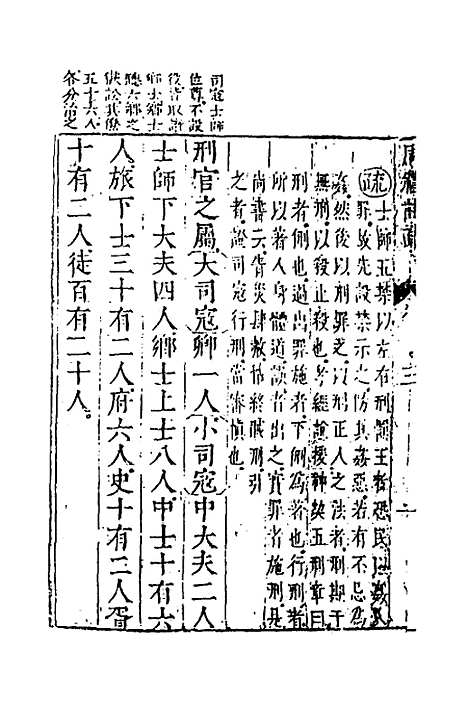 司寇士師
位尊不設
役皆取諸
鄉士鄉士
五十六人
各分治之
疏士師五禁以左右刑罰王者恐民
罪故先設禁示之防其姦惡若有不忌為
姦然後以刑罪之以刑正人之法者刑期于
無刑以殺止殺也孝經援神契五刑章曰
刑者侀也過出罪施者下侀為著也行刑者
所以著人身體過誤者出之實罪者施刑是
尚書云眚災肆赦怙終賊刑引
之者證司寇行刑當審慎也
刑官之屬大司寇卿一人小司寇中大夫二人
士師下大夫四人鄉士上士八人中士十有六
人旅下士三十有二人府六人史十有二人胥
十有二人徒百有二十人。